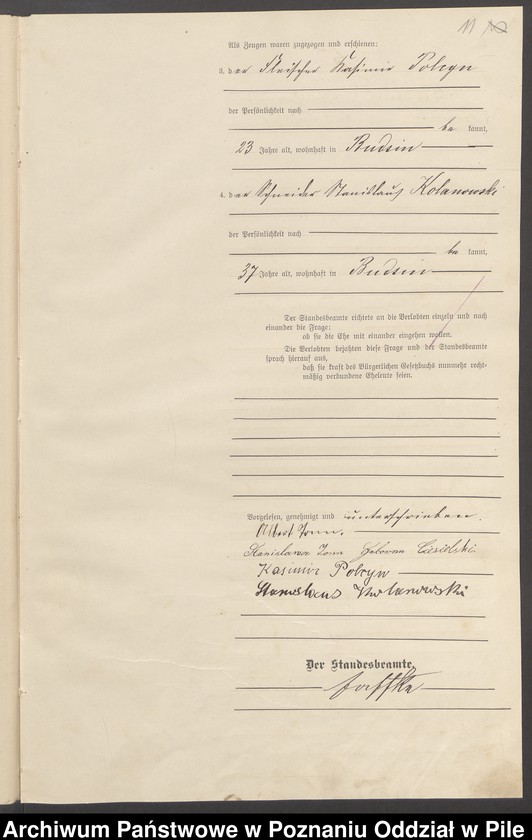 11
Als Zeugen waren zugezogen und erschienen:
3. der Fleischer Kasimir Polcyn
der Persönlichkeit nach
be kannt,
23 Jahre alt, wohnhaft in Budsin
4. der Schneider Stanislaus Kolanowski
der Persönlichkeit nach
be kannt,
37 Jahre alt, wohnhaft in Budsin
Der Standesbeamte richtete an die Verlobten einzeln und nach
einander die Frage:
ob sie die Ehe mit einander eingehen wollen.
Die Verlobten bejahten diese Frage und der Standesbeamte
sprach hierauf aus,
daß sie kraft des Bürgerlichen Gesetzbuchs nunmehr recht-
mäßig verbundene Eheleute seien.
Vorgelesen, genehmigt und unterschrieben.
Albert Tonn.
Stanislawa Tonn
Kasimir Polcyn
Stanislaus Kolanowski
Der Standesbeamte.
Jaffke
Archiwum Państwowe w Poznaniu Oddział w Pile